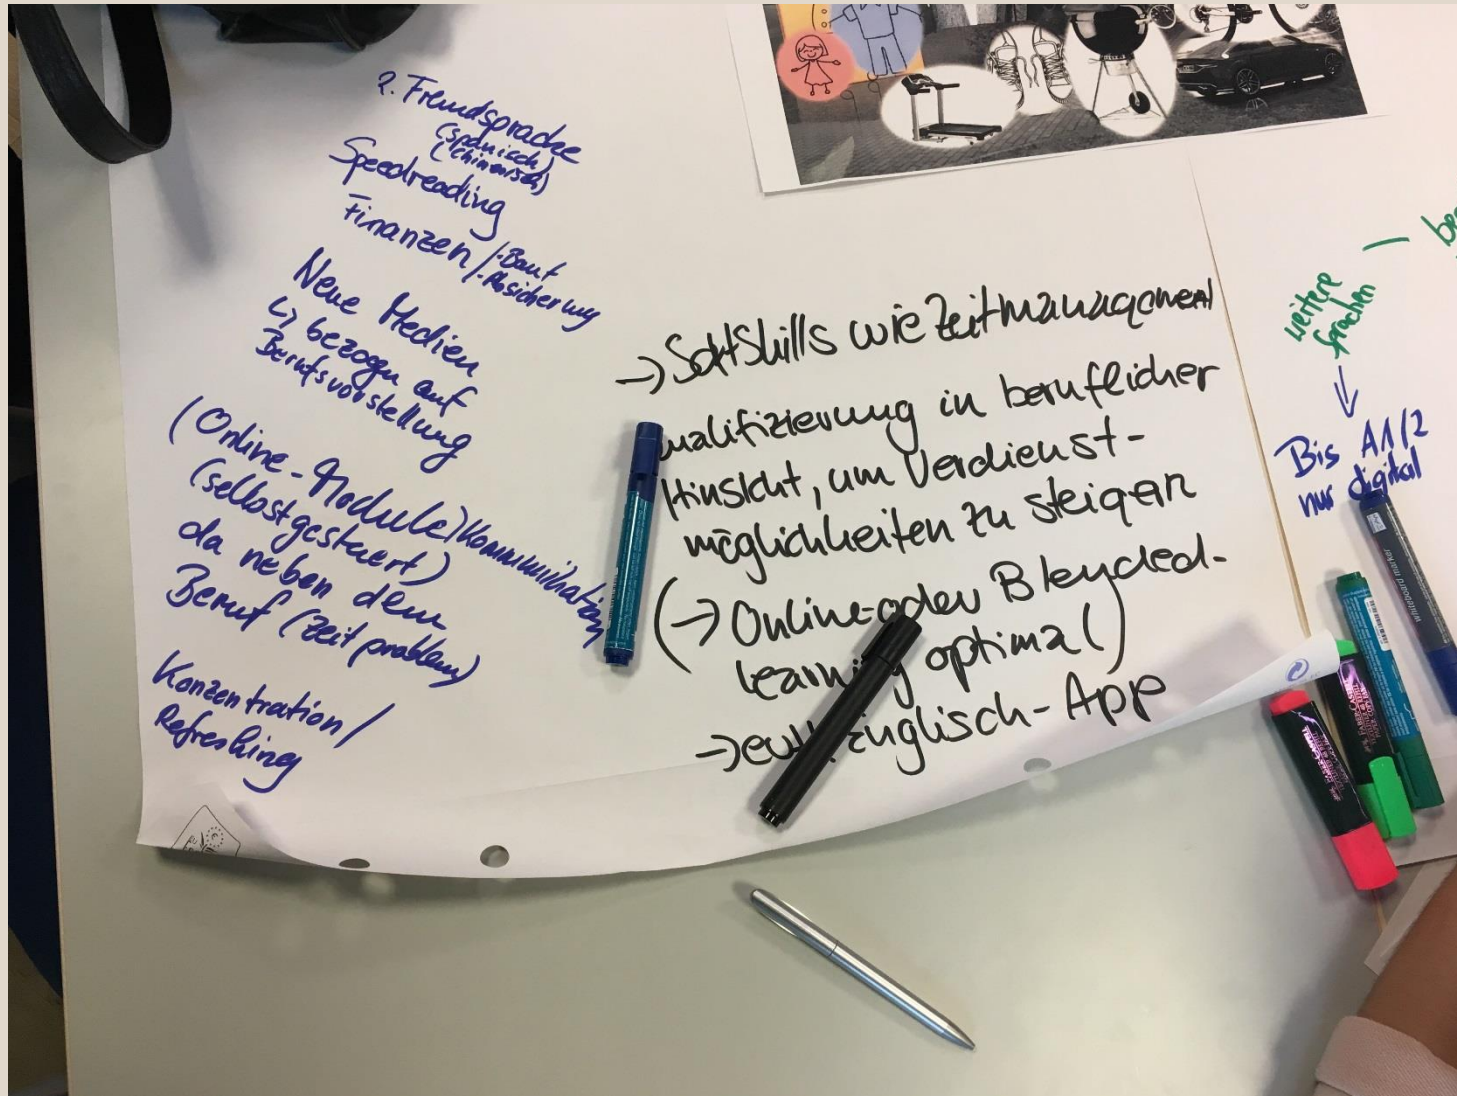 2. Fremdsprache
(spanisch)
(chinesisch)
Speedreading
Finanzen /
-Absicherung
Neue Medien
↳ bezogen auf
Berufsvorstellung
(Online-Module) Kommunikation
(selbstgesteuert)
da neben dem
Beruf (Zeitproblem)
Konzentration /
Refreshing
→ SoftSkills wie Zeitmanagement
ualifizierung in beruflicher
Hinsicht, um Verdienst-
möglichkeiten zu steigern
(→ Online-oder Blended-
Learning optimal)
→ Englisch-App
weitere
Sprachen
Bis A1/2
nur digital
whiteboard marker